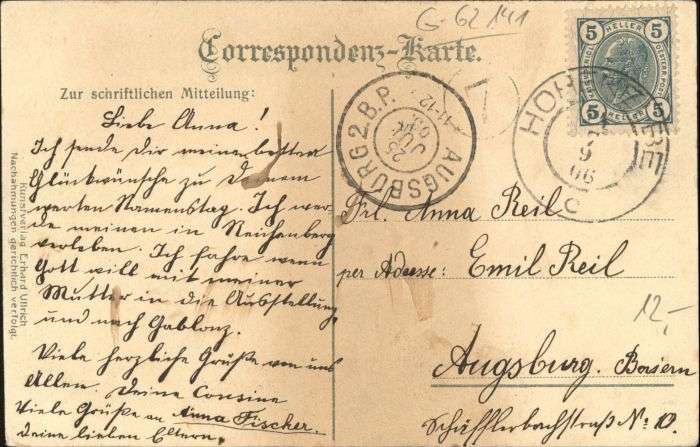 G-62141
Correspondenz-Karte.
5 HELLER 5
5 5
AUGSBURG 2.B.P.
25
JUL
11-12
HOH
9
06
C
7
Zur schriftlichen Mitteilung:
Liebe Anna!
Ich sende dir meine besten
Glückwünsche zu Deinem
werten Namenstag. Ich wer-
de meinen in Reichenberg
verleben. Ich fahre wenn
Gott will mit meiner
Mutter in die Ausstellung
und nach Gablonz.
Viele herzliche Grüße von uns
Allen. Deine Consine
Anna Fischer.
Viele Grüße an
deine lieben Eltern.
Kunstverlag Erhard Ullrich
Nachahmungen gerichtlich verfolgt.
Frl. Anna Reil
per Adresse: Emil Reil
12,-
Augsburg. Baiern
Schäfflerbachstraß No: 10.